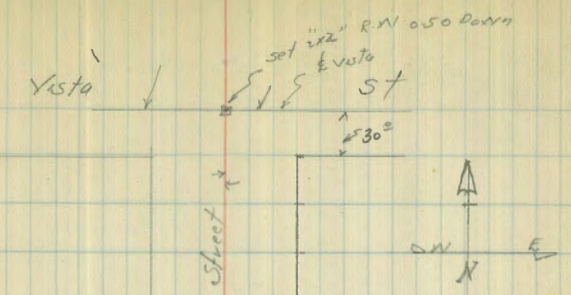 set "2x2" R.W 0.50 Down
℄ Vista
Vista St
30º
Street
W E
N